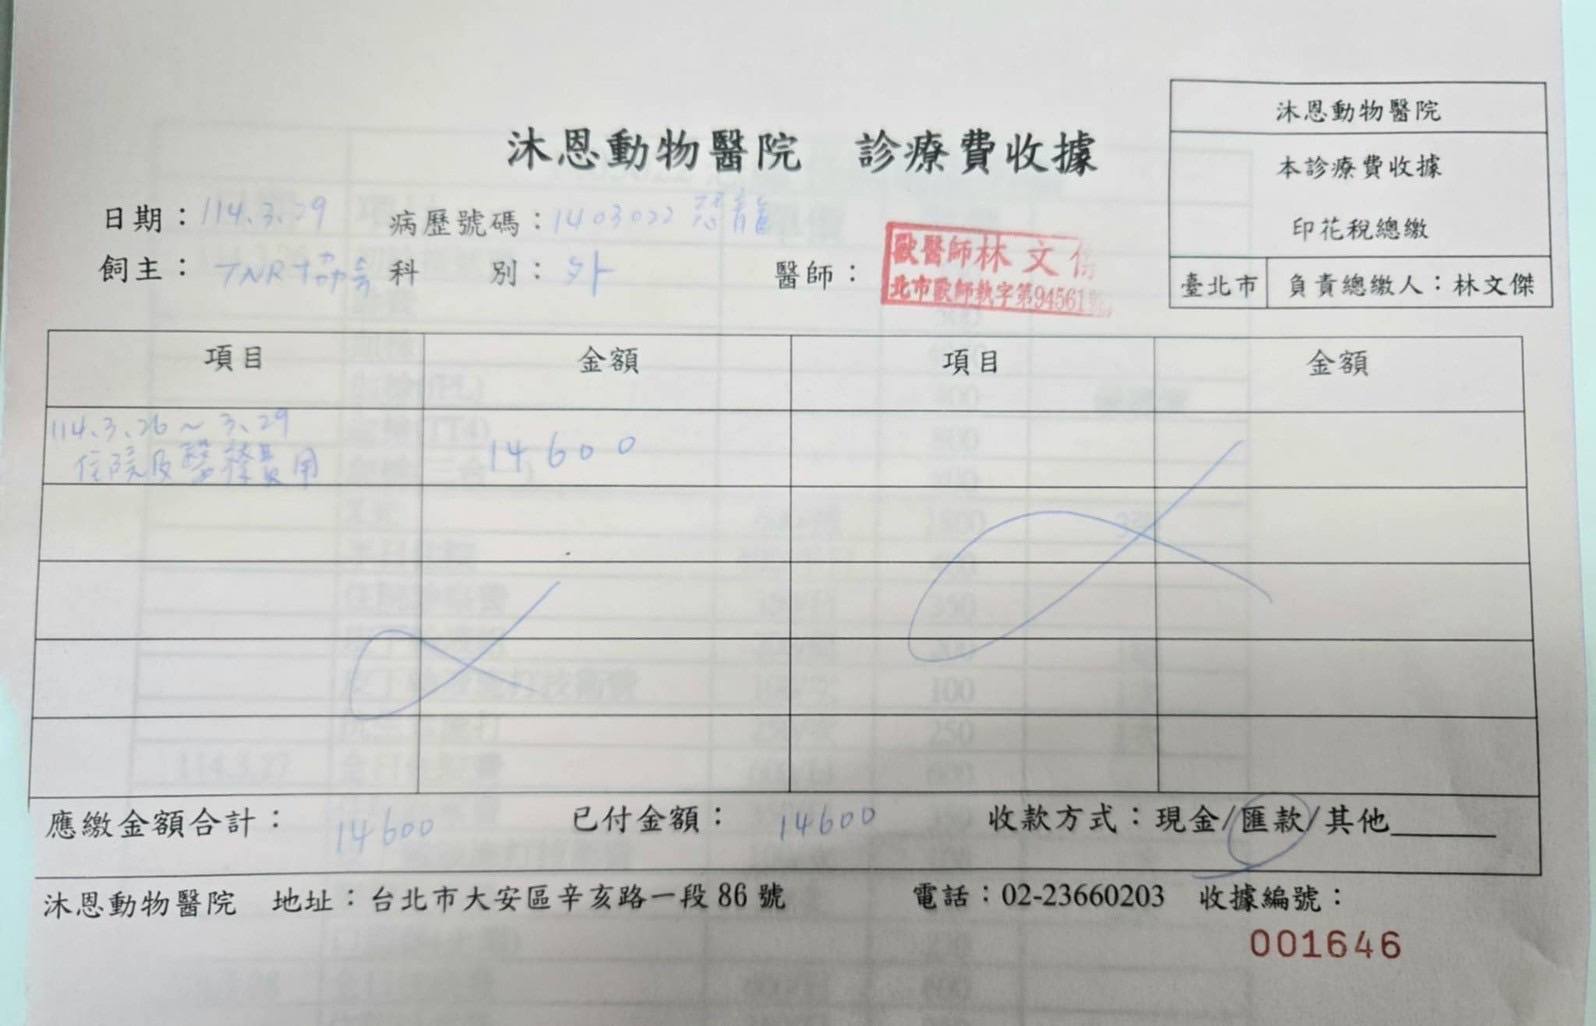 沐恩動物醫院 診療費收據
沐恩動物醫院
本診療費收據
印花稅總繳
臺北市 負責總繳人：林文傑
日期：114.3.29 病歷號碼：1403022 恐龍
飼主：TNR協會 科 別：外 醫師：
獸醫師林文傑
北市獸師執字第94561號
項目 金額 項目 金額
114.3.26～3.29
住院及醫療費用 14600
應繳金額合計：14600 已付金額：14600 收款方式：現金/匯款/其他
沐恩動物醫院 地址：台北市大安區辛亥路一段86號 電話：02-23660203 收據編號：
001646